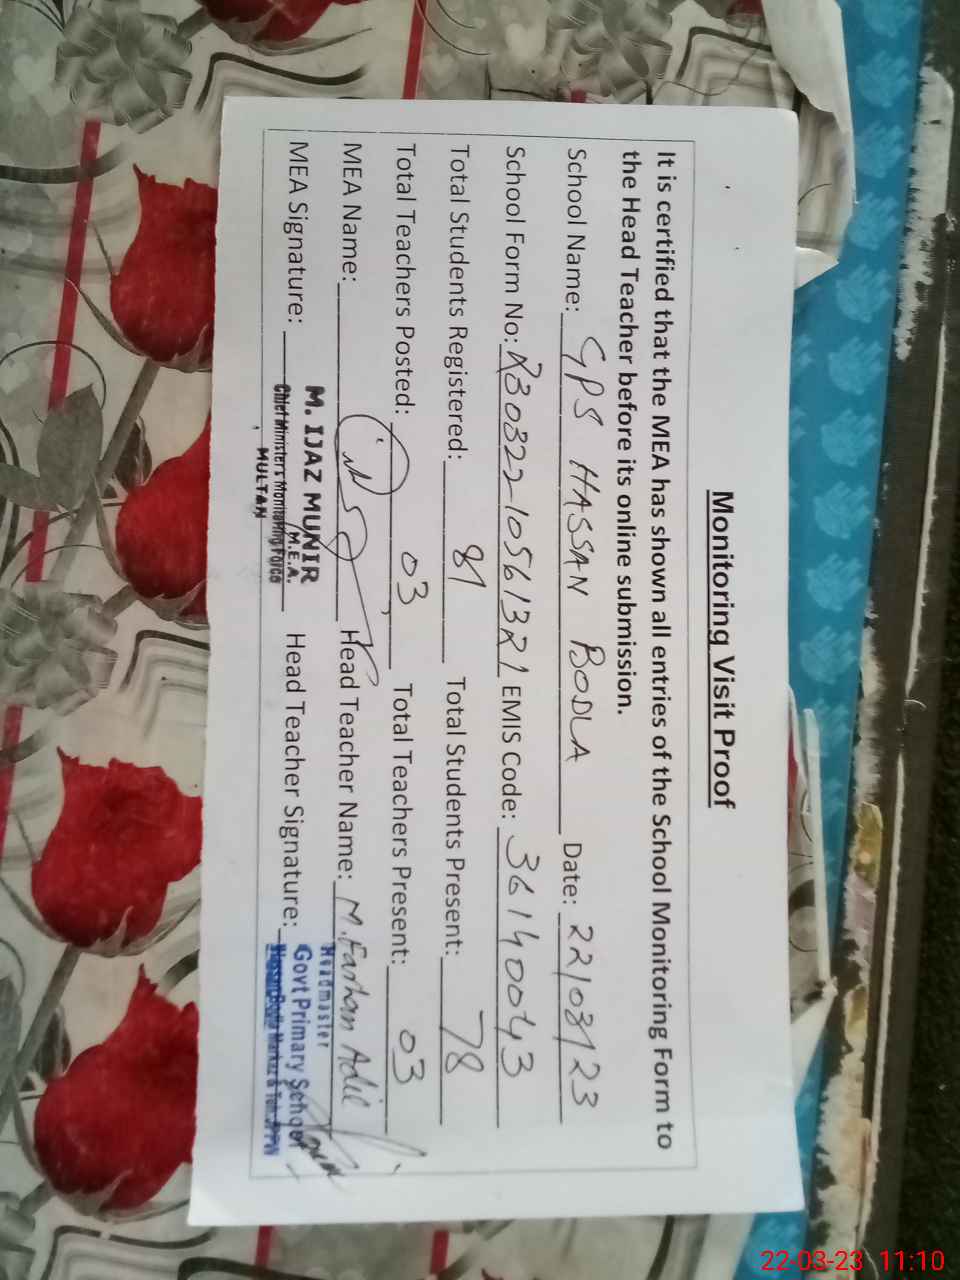 Monitoring Visit Proof
It is certified that the MEA has shown all entries of the School Monitoring Form to
the Head Teacher before its online submission.
School Name: GPS HASSAN BODLA Date: 22/03/23
School Form No: R303221056132R1 EMIS Code: 36140043
Total Students Registered: 81 Total Students Present: 78
Total Teachers Posted: 03 Total Teachers Present: 03
MEA Name: Head Teacher Name: M. Farhan Adil
MEA Signature: Head Teacher Signature:
M. IJAZ MUNIR
M.E.A.
Chief Minister's Monitoring Force
MULTAN
Headmaster
Govt Primary School
Hassan Bodla Markaz & Teh. JPPW
22-03-23 11:10